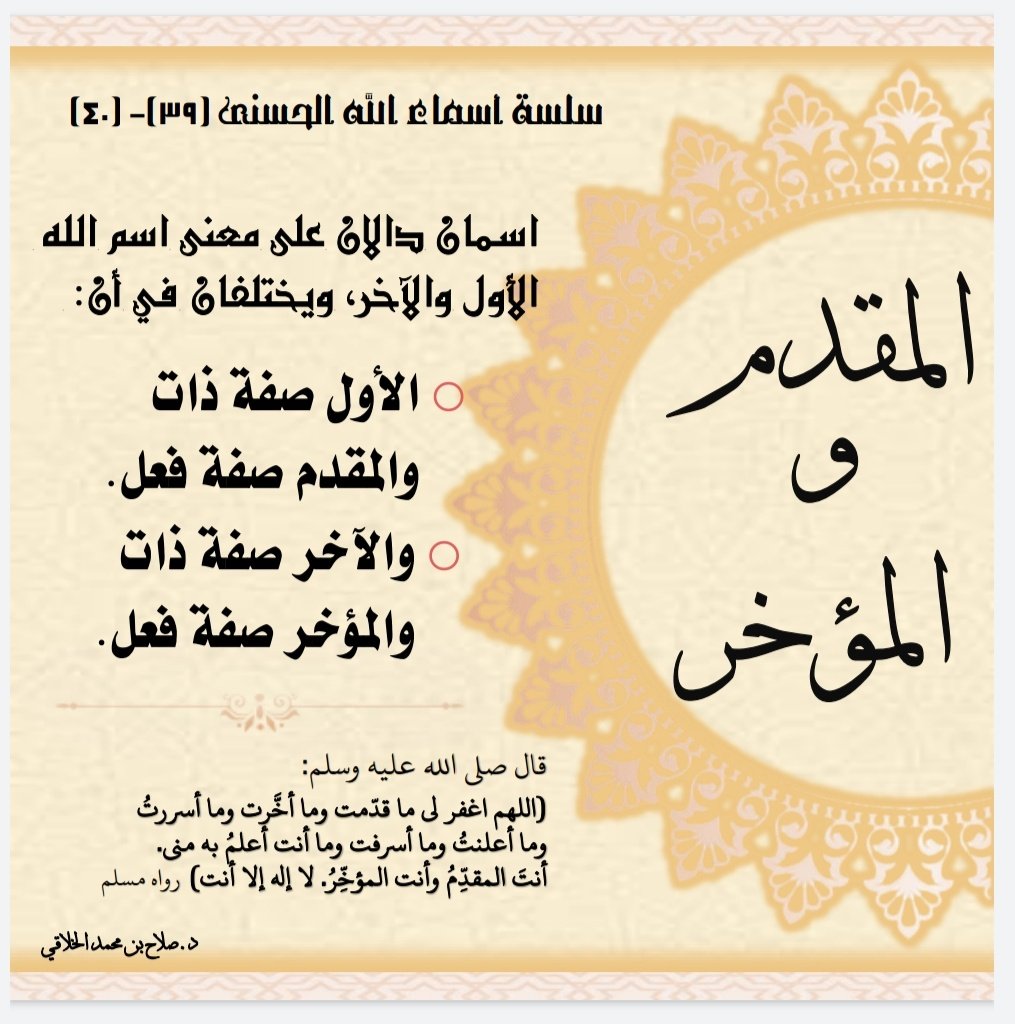 سلسة اسماء الله الحسنى (٣٩)- (٤٠)
المقدم
و
المؤخر
اسمان دالان على معنى اسم الله
الأول والآخر، ويختلفان في أن:
الأول صفة ذات
والمقدم صفة فعل.
والآخر صفة ذات
والمؤخر صفة فعل.
قال صلى الله عليه وسلم:
(اللهم اغفر لى ما قدّمت وما أخَّرت وما أسررتُ
وما أعلنتُ وما أسرفت وما أنت أعلمُ به منى.
أنتَ المقدِّمُ وأنت المؤخِّرُ. لا إله إلا أنت) رواه مسلم
د.صلاح بن محمد الخلاقي